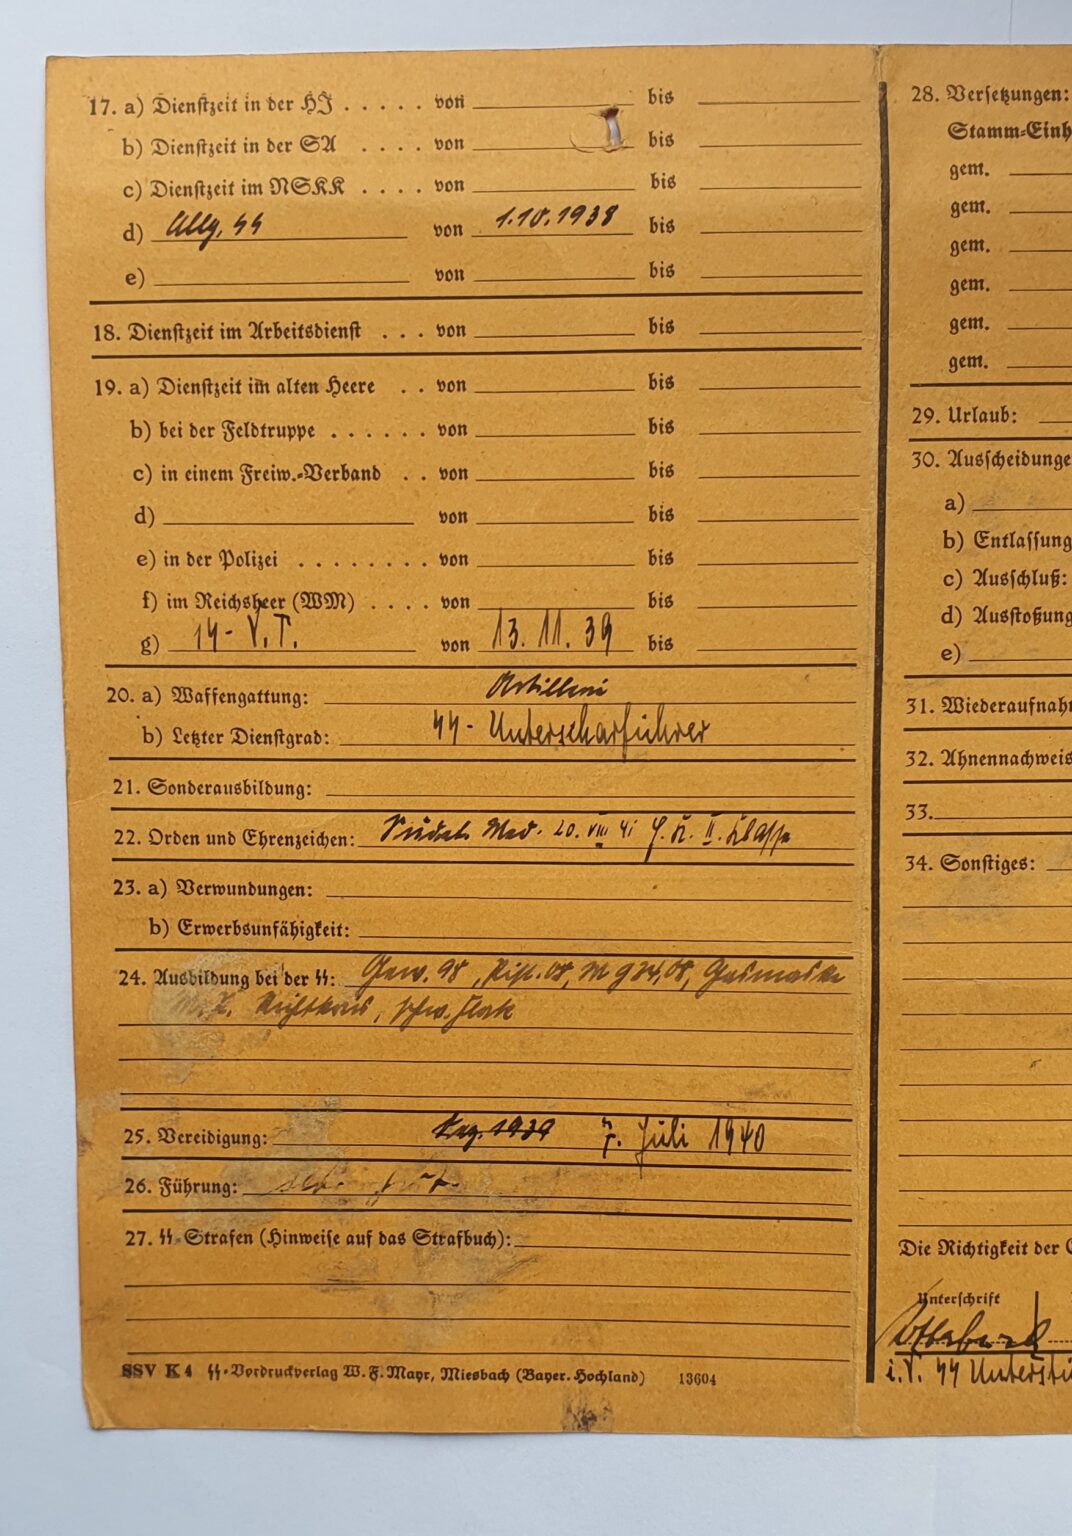 17. a) Dienstzeit in der HJ . . . . . von bis
b) Dienstzeit in der SA . . . . von bis
c) Dienstzeit im NSKK . . . . von bis
d) Allg. ᛋᛋ von 1.10.1938 bis
e) von bis
18. Dienstzeit im Arbeitsdienst . . . von bis
19. a) Dienstzeit im alten Heere . . von bis
b) bei der Feldtruppe . . . . . . von bis
c) in einem Freiw.-Verband . . von bis
d) von bis
e) in der Polizei . . . . . . . . von bis
f) im Reichsheer (WM) . . . . von bis
g) ᛋᛋ- V.T. von 13. 11. 39 bis
20. a) Waffengattung: Artillerie
b) Letzter Dienstgrad: ᛋᛋ- Unterscharführer
21. Sonderausbildung:
22. Orden und Ehrenzeichen: Sudet. Med. 20. VIII 41 II. Klasse
23. a) Verwundungen:
b) Erwerbsunfähigkeit:
24. Ausbildung bei der ᛋᛋ: Gew. 98, Pist. 08, M G 34, 08, Gasmaske
Richtkreis, schw. Flak
25. Vereidigung: 1939 7. Juli 1940
26. Führung: sehr gut.
27. ᛋᛋ-Strafen (Hinweise auf das Strafbuch):
SSV K 4 ᛋᛋ-Vordruckverlag W. F. Mayr, Miesbach (Bayer. Hochland) 13604
28. Versetzungen:
Stamm-Einh
gem.
gem.
gem.
gem.
gem.
gem.
29. Urlaub:
30. Ausscheidunge
a)
b) Entlassung
c) Ausschluß:
d) Ausstoßung
e)
31. Wiederaufnah
32. Ahnennachweis
33.
34. Sonstiges:
Die Richtigkeit der
Unterschrift
i.V. ᛋᛋ Unterst